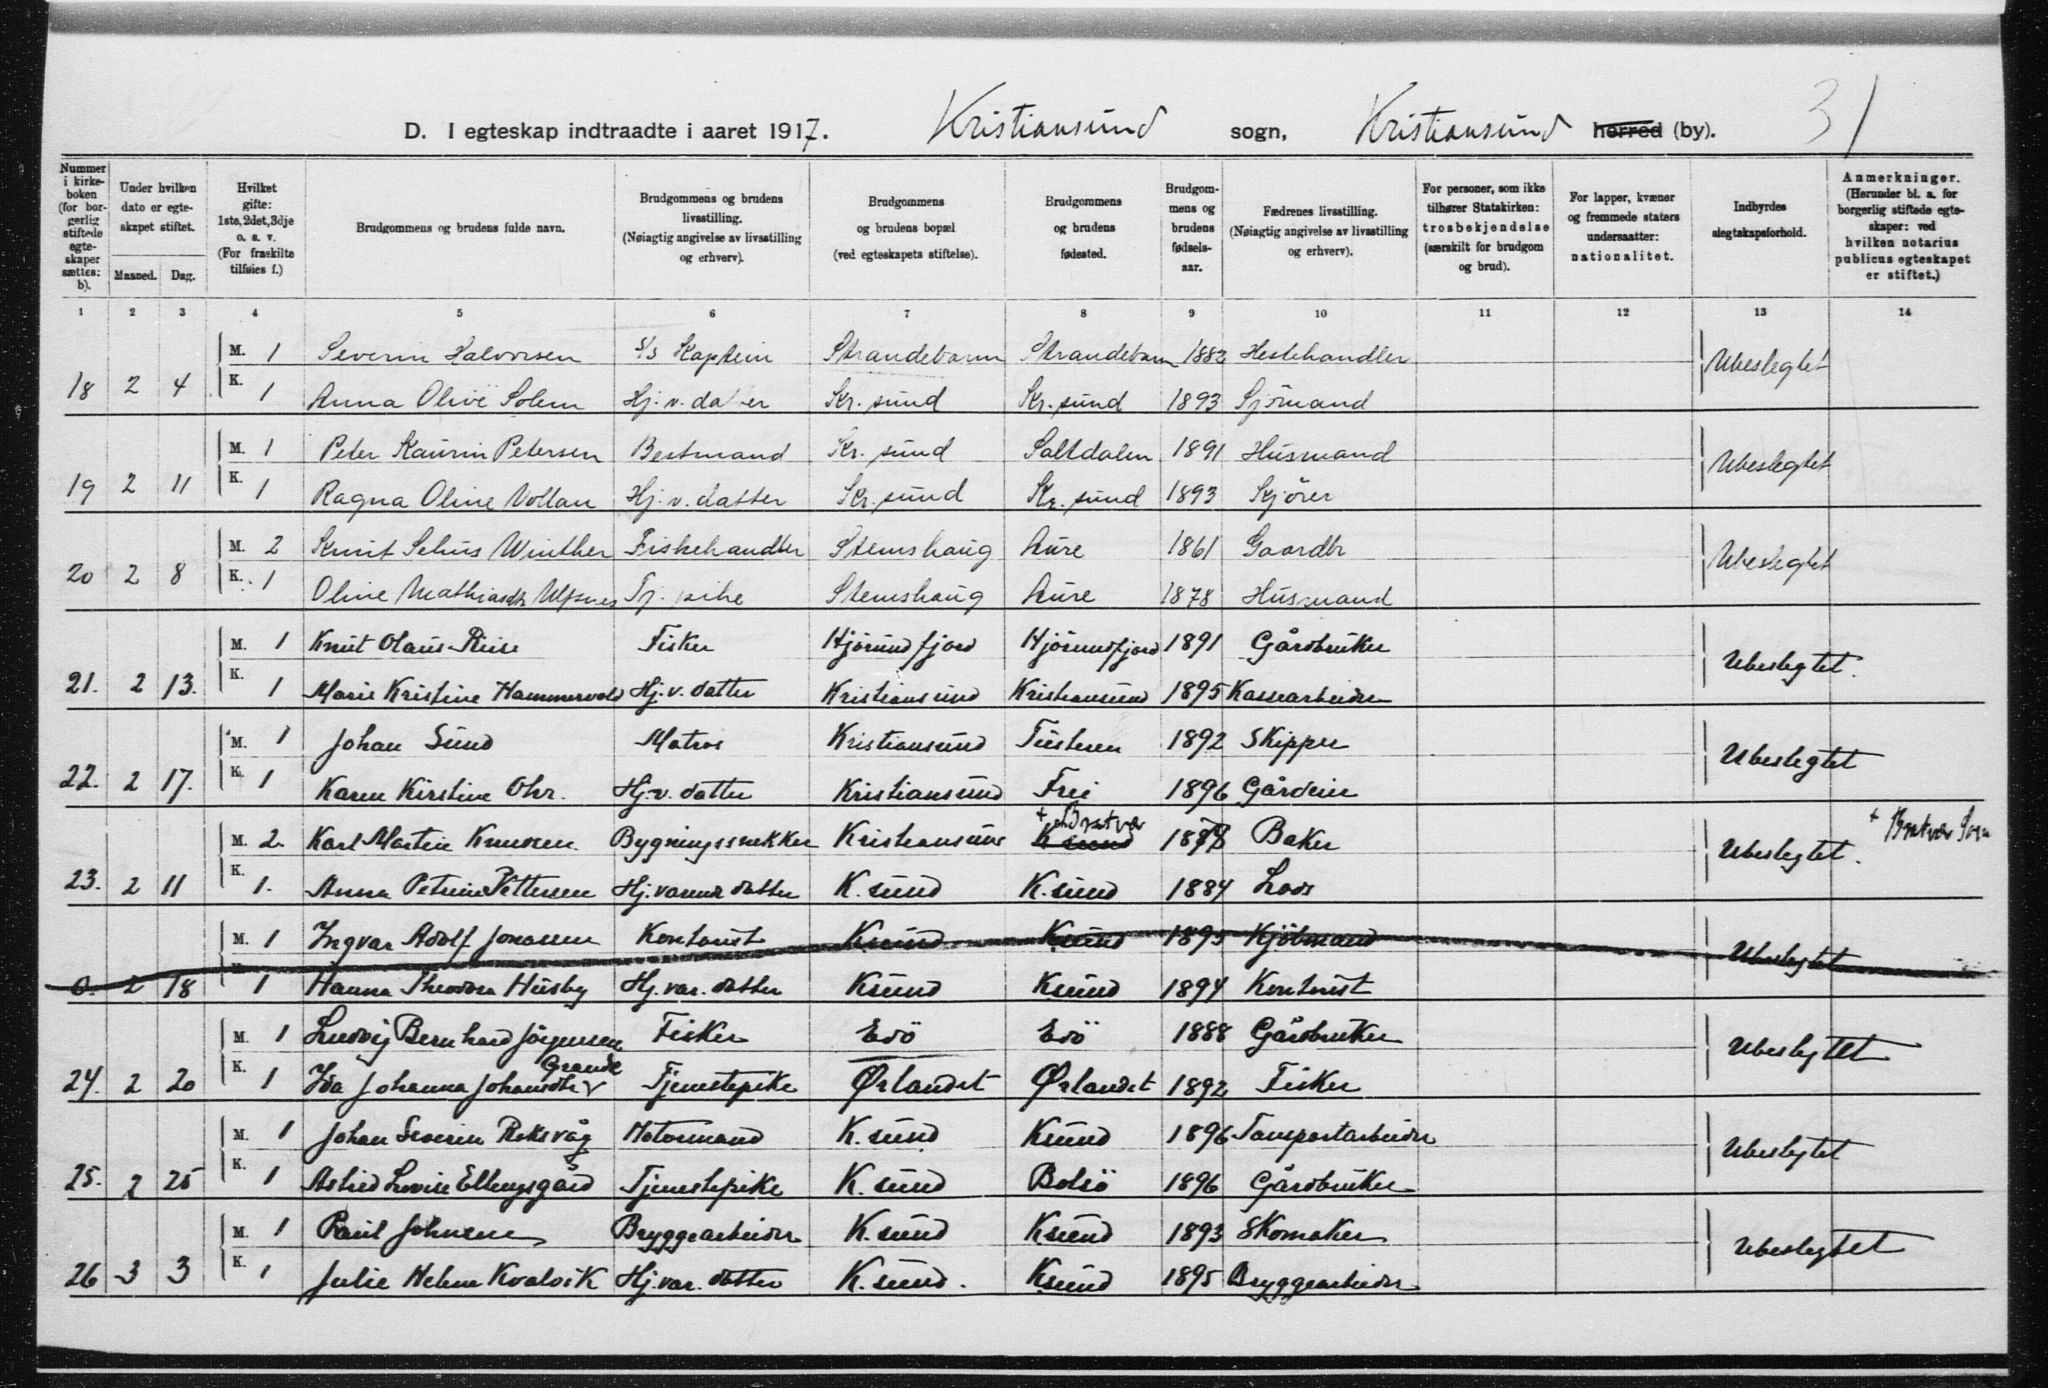 31
D. I egteskap indtraadte i aaret 1917. Kristiansund sogn, Kristiansund herred (by).
Nummer i kirkeboken (for borgerlig stiftede egteskaper sættes: b).
Under hvilken dato er egteskapet stiftet.
Maaned. Dag.
Hvilket gifte: 1ste, 2det, 3dje o. s. v. (For fraskilte tilføies f.)
Brudgommens og brudens fulde navn.
Brudgommens og brudens livsstilling. (Nøiagtig angivelse av livsstilling og erhverv).
Brudgommens og brudens bopæl (ved egteskapets stiftelse).
Brudgommens og brudens fødested.
Brudgommens og brudens fødselsaar.
Fædrenes livsstilling. (Nøiagtig angivelse av livsstilling og erhverv).
For personer, som ikke tilhører Statskirken: trosbekjendelse (særskilt for brudgom og brud).
For lapper, kvæner og fremmede staters undersaatter: nationalitet.
Indbyrdes slegtskapsforhold.
Anmerkninger. (Herunder bl. a. for borgerlig stiftede egteskaper: ved hvilken notarius publicus egteskapet er stiftet.)
1 2 3 4 5 6 7 8 9 10 11 12 13 14
M. 1 Severin Halvorsen S/S Kaptein Strandebarm Strandebarm 1883 Hestehandler
18 2 4 K. 1 Anna Olive Solem Hj. v. datter Kr. sund Kr. sund 1893 Sjömand Ubeslegtet
M. 1 Peter Kaurin Petersen Bestmand Kr. sund Saltdalen 1891 Husmand
19 2 11 K. 1 Ragna Oline Vollan Hj. v. datter Kr. sund Kr. sund 1893 Skjörer Ubeslegtet
M. 2 Knut Selius Winther Fiskehandler Stemshaug Aure 1861 Gaardbr
20 2 8 K. 1 Oline Mathiasdtr Ulfsnes Tj. pike Stemshaug Aure 1878 Husmand Ubeslegtet
M. 1 Knut Olaus Riise Fisker Hjörundfjord Hjörundfjord 1891 Gårdbruker
21. 2 13. K. 1 Marie Kristine Hammervold Hj. v. datter Kristiansund Kristiansund 1895 Kassearbeider Ubeslegtet.
M. 1 Johan Sund Matros Kristiansund Tusteren 1892 Skipper
22. 2 17. K. 1 Karen Kirstine Ohr. Hj. v. datter Kristiansund Frei 1896 Gårdeier Ubeslegtet
M. 2. Karl Martin Knudsen Bygningssnekker Kristiansund K sund + Bratvær Baker + Bratvær Sogn
23. 2 11 K. 1. Anna Petrine Pettersen Hj. værende datter K. sund K. sund 1884 Lods Ubeslegtet.
M. 1 Ingvar Adolf Jonassen Kontorist Ksund Ksund 1895 Kjölmand
0. 2 18 K. 1 Hanna Theodora Husby Hj. vær. datter Ksund Ksund 1894 Kontorist Ubeslegtet
M. 1 Ludvig Bernhard Jörgensen Fisker Edö Edö 1888 Gårdbruker
24. 2 20 K. 1 Ida Johanna Johansdtr Grande Tjenestepike Ørlandet Ørlandet 1892 Fisker Ubeslegtet
M. 1 Johan Severin Reksvåg Motormand K. sund Ksund 1896 Transportarbeider
25. 2 25 K. 1 Astrid Lovise Ellingsgård Tjenestepike K. sund Bolsö 1896 Gårdbruker Ubeslegtet
M. 1 Paul Johnsen Bryggearbeider K. sund Ksund 1893 Skomaker
26 3 3 K. 1 Julie Helene Kvalvik Hj. vær. datter K. sund. Ksund 1895 Bryggearbeider Ubeslegtet